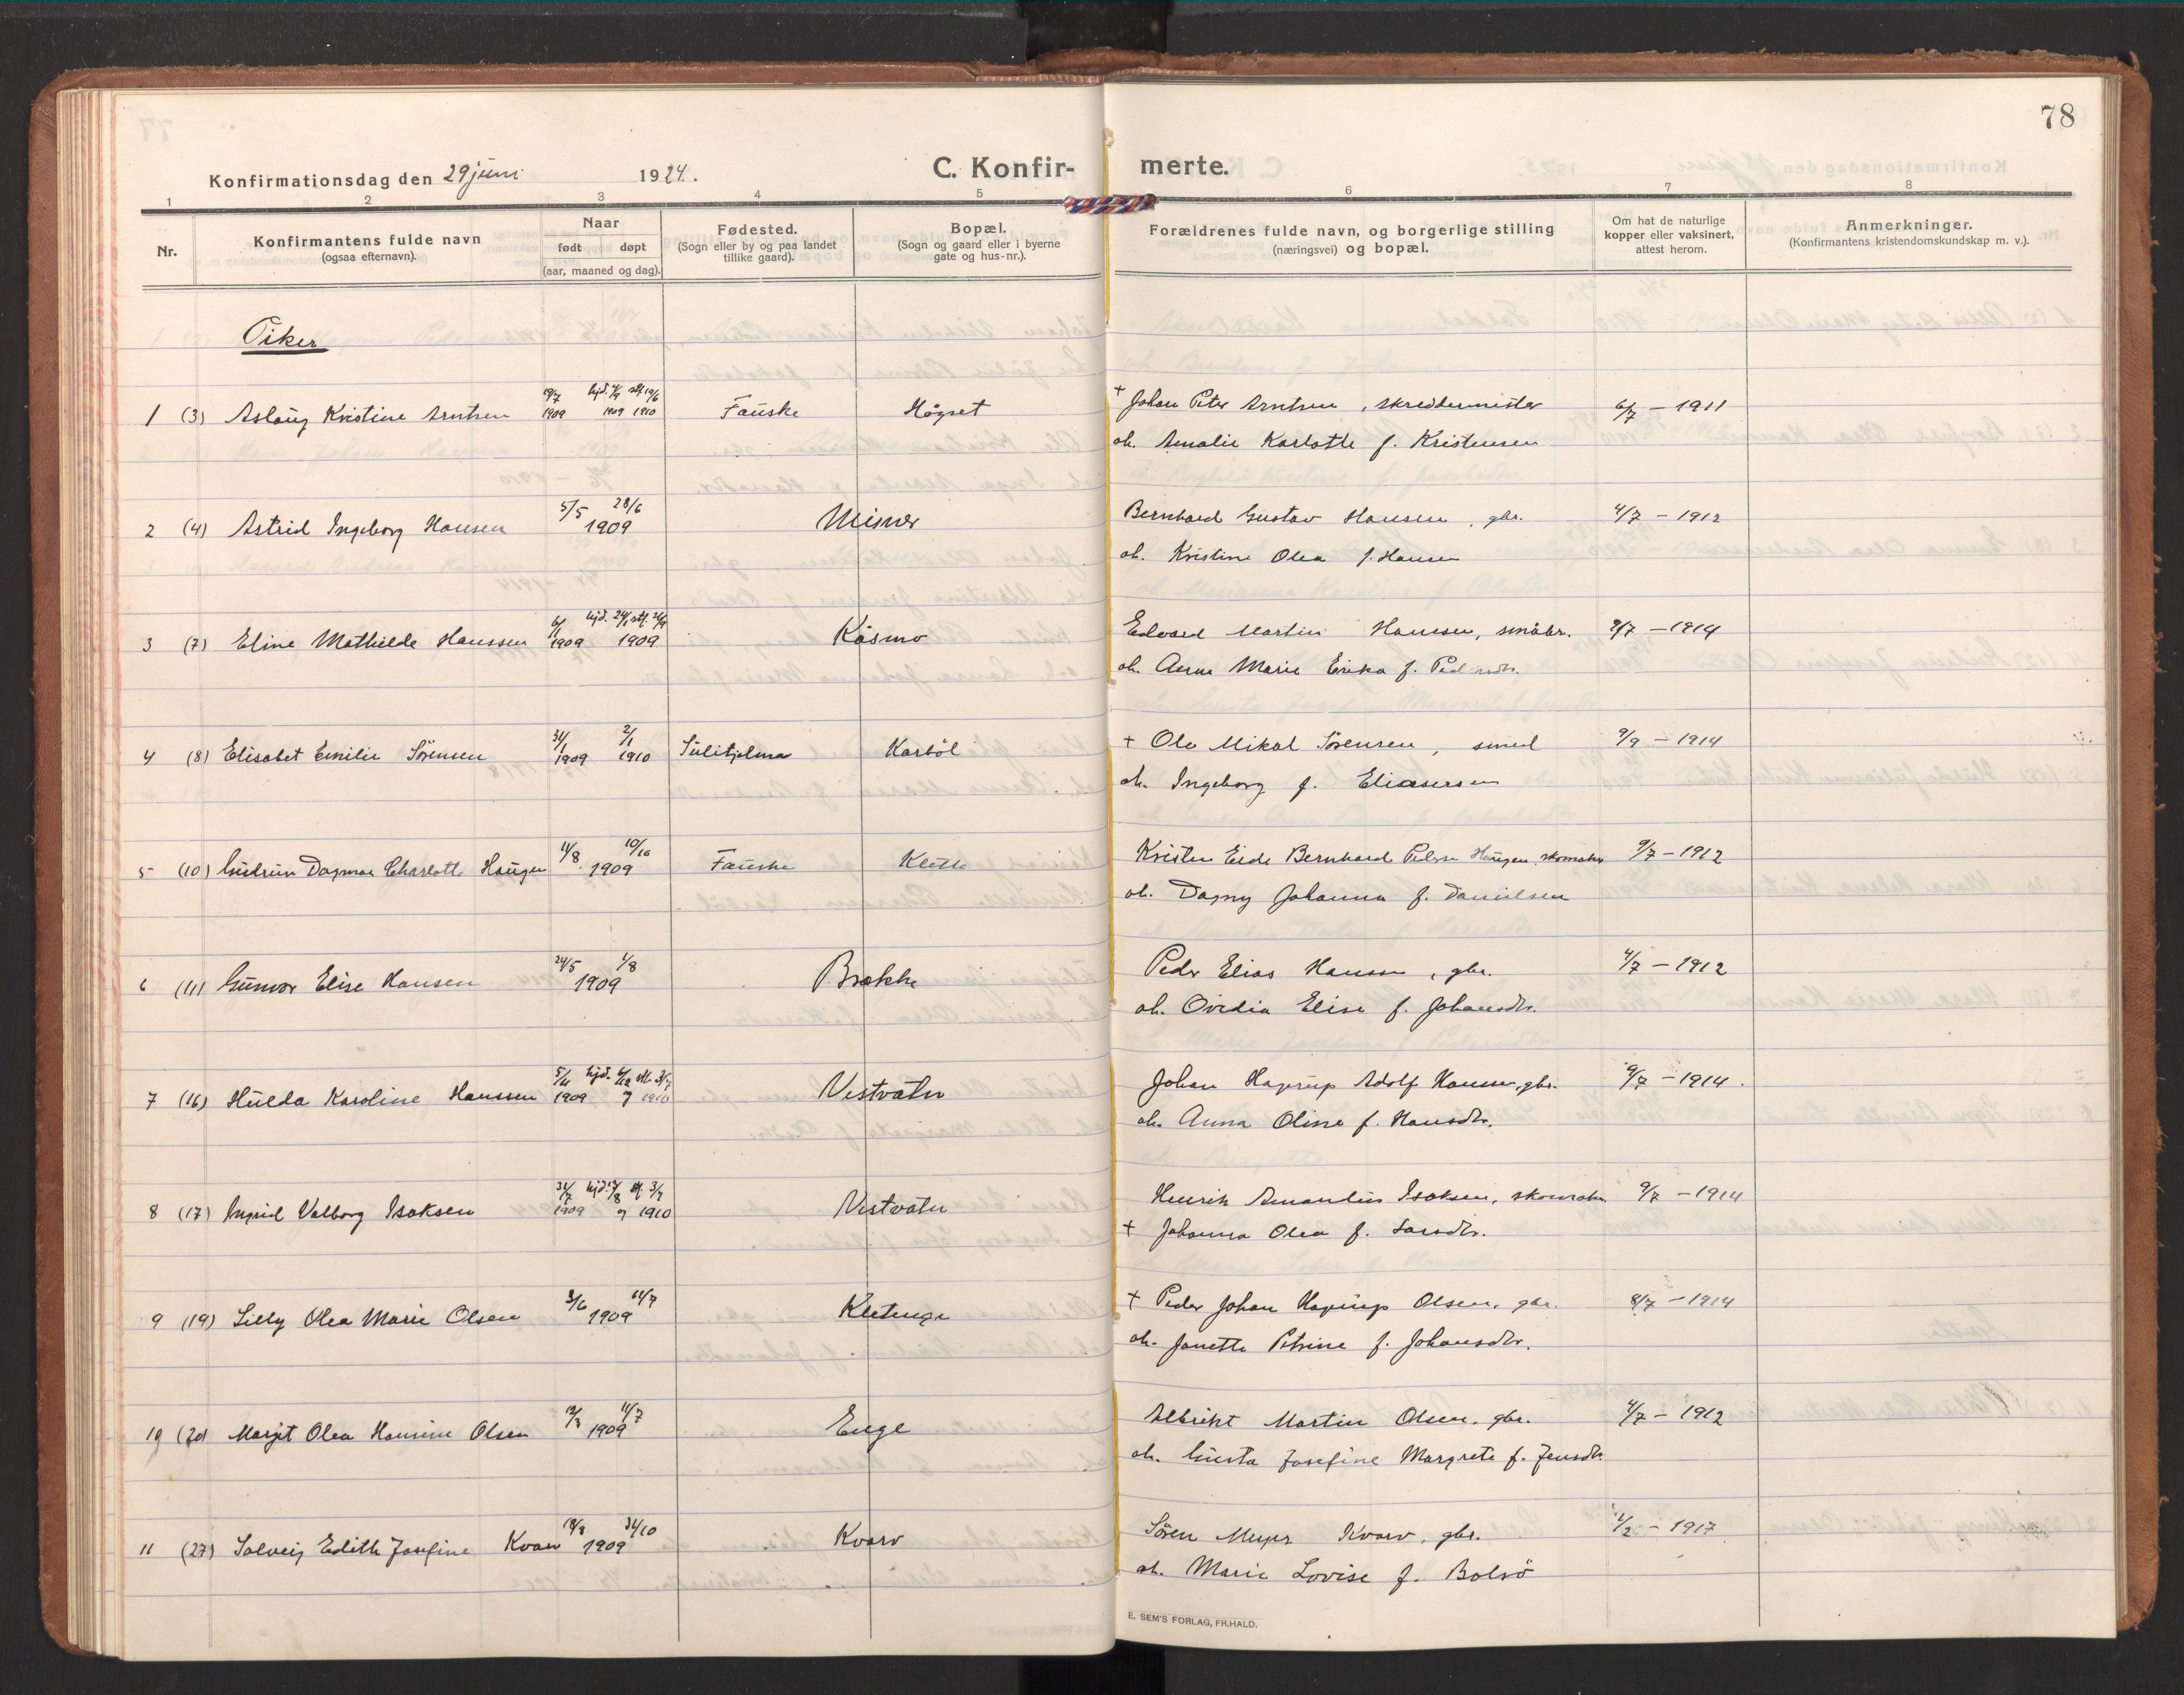 78
Konfirmationsdag den 29 juni 1924.
C. Konfir- merte.
1 2 3 4 5 6 7 8
Nr.
Konfirmantens fulde navn
(ogsaa efternavn).
Naar
født døpt
(aar, maaned og dag).
Fødested.
(Sogn eller by og paa landet
tillike gaard).
Bopæl.
(Sogn og gaard eller i byerne
gate og hus-nr.).
Forældrenes fulde navn, og borgerlige stilling
(næringsvei) og bopæl.
Om hat de naturlige
kopper eller vaksinert,
attest herom.
Anmerkninger.
(Konfirmantens kristendomskundskap m. v.).
Piker
19/7 hjd. stf. 19/6 + Johan Peter Arntsen, skreddermester 6/7 – 1911
1 (3) Aslaug Kristine Arntsen 1909 1909 1910 Fauske Høgset
oh. Amalie Karlotte f. Kristensen
5/5 28/6 Misvær Bernhard Gustav Hansen, gbr. 4/7 – 1912
2 (4) Astrid Ingeborg Hansen 1909
oh. Kristine Olea f. Hansen
6/1 hjd. 24/1 stf. Kåsmo Edvard Martin Hansen, småbr. 9/7 – 1914
3 (7) Eline Mathilde Hanssen 1909 1909
oh. Anna Marie Erika f. Pedersdtr.
31/1 2/1 + Ole Mikal Sörensen, smed 9/9 – 1914
4 (8) Elisabet Emilie Sörensen 1909 1910 Sulitjelma Karböl
oh. Ingeborg f. Eliasersen
11/8 10/10 Kristen Eide Bernhard Haugen, skomaker 9/7 – 1912
5 (10) Gudrun Dagmar Charlotte Haugen 1909 Fauske Klette
oh. Dagny Johanna f. Danielsen
24/5 1/8 Brække Peder Elias Hansen, gbr. 4/7 – 1912
6 (11) Gunvor Elise Hansen 1909
oh. Ovidia Elise f. Johansdtr.
hjd. stf. 3/7 Vestvatn Johan Hagerup Adolf Hansen, gbr. 9/7 – 1914.
7 (16) Hulda Karoline Hanssen 1909 9 1910
oh. Anna Oline f. Hansdtr.
31/7 hjd. stf. 3/7 Vestvatn Henrik Amandus Isaksen, skomaker 9/7 – 1914
8 (17) Ingrid Valborg Isaksen 1909 9 1910
+ Johanna Olea f. Larsdtr.
3/6 11/7 Kletenge + Peder Johan Hagerup Olsen, gbr. 8/7 – 1914
9 (19) Lilly Olea Marie Olsen 1909
oh. Janette Petrine f. Johansdtr.
12/3 11/7 Enge Albrikt Martin Olsen, gbr. 4/7 – 1912
10 (20) Margit Olea Hansine Olsen 1909
oh. Gusta Josefine Margrete f. Jensdtr.
18/8 31/10 Kvarv Sören Meyer Kvarv, gbr. 1/2 – 1917
11 (27) Solveig Edith Josefine Kvarv 1909
oh. Marie Lovise f. Bolsö
E. SEM'S FORLAG, FR.HALD.